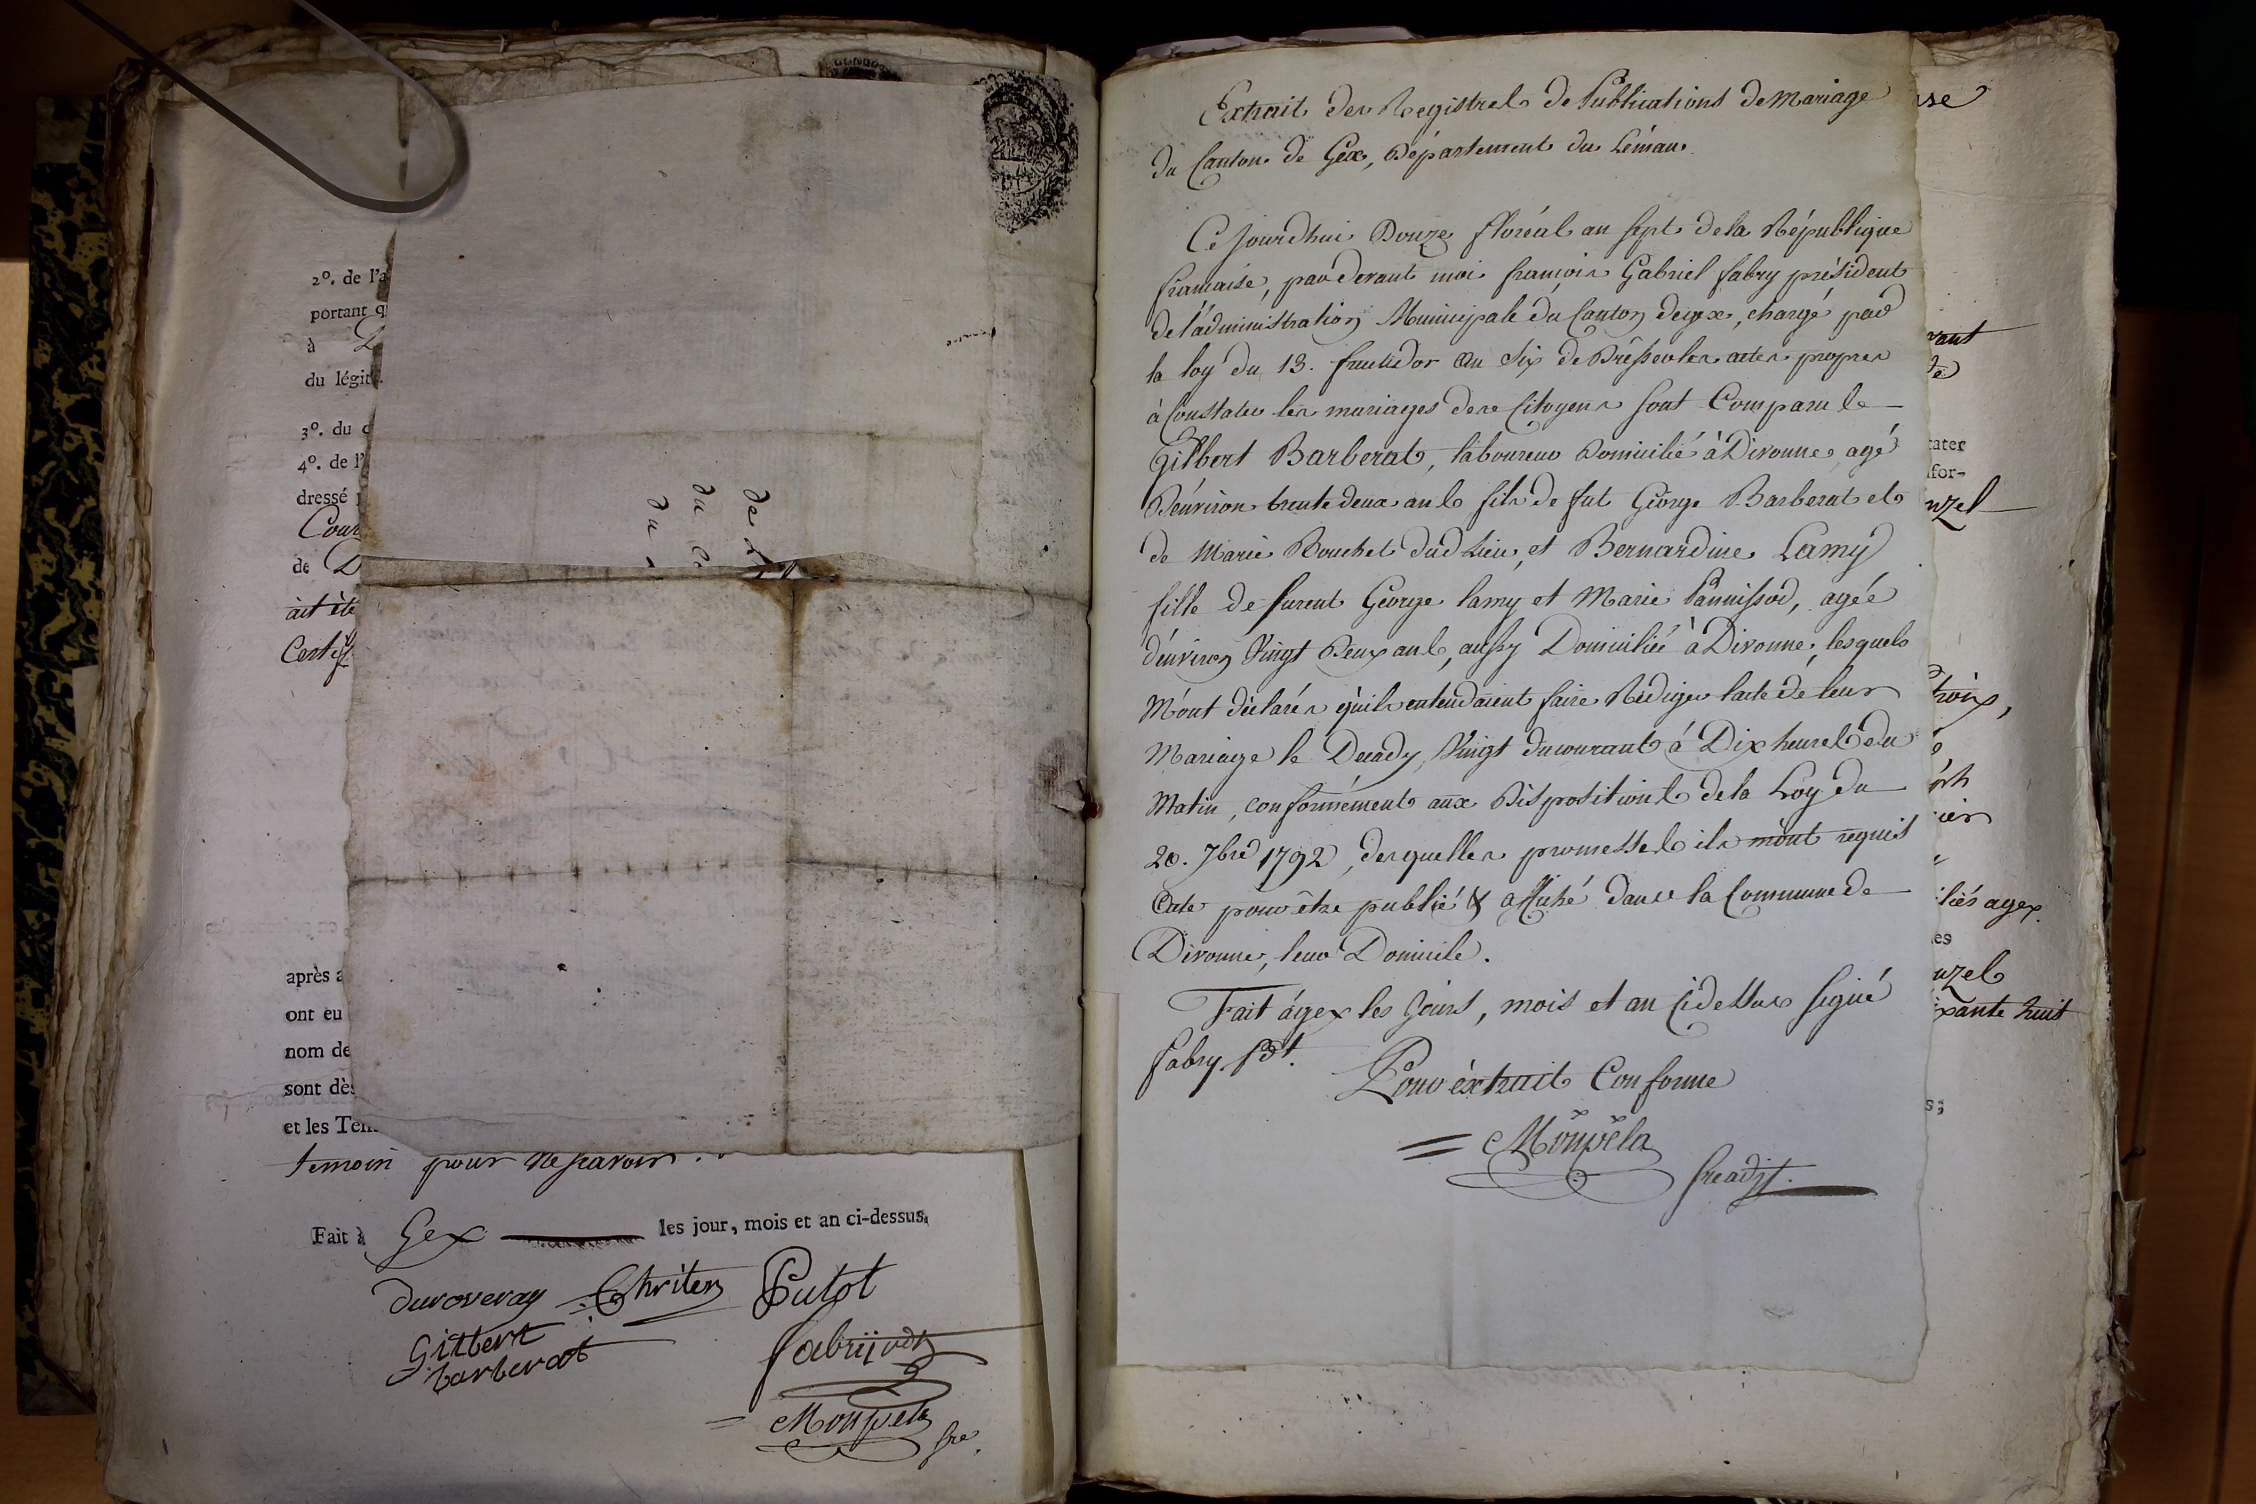 2º. de l'a
portant q
à
du légit
3º. du
4º. de l'
dressé
Cour
de D
ait été
Certif
de
du
du
après a
ont eu
nom de
sont dès
et les Tem
temoin pour Ne scavoir.
Fait à Gex les jour, mois et an ci-dessus.
Duroveray Chriten Putot
Gilbert
barberat
fabry pdt
Monpela
sre.
Extrait des Registres de Publications de Mariage
du Canton de Gex, Département du Léman.
Ce jourdhui Douze floréal an sept de la République
francaise, par devant moi françois Gabriel fabry président
de l'administration Municipale du Canton de gex, chargé par
la loy du 13. fructidor an Six de Dresser les actes propres
à Constater les mariages des Citoyens sont Comparu le
Gilbert Barberat, laboureur Domicilié à Divonne, agé
D'environ trente deux ans fils de fut George Barberat et
de Marie Bouchet dud Lieu, et Bernardine Lamy
fille de furent George lamy et Marie Pannissod, agée
d'environ Vingt Deux ans, aussy Domiciliée à Divonne, lesquels
M'ont déclarés qu'ils entendaient faire Rédiger l'acte de leur
Mariage le Decady, Vingt du courant à Dix heures du
Matin, conformément aux Dispositions de la Loy du
20. 7bre 1792, desquelles promesses ils m'ont requis
acte pour être publié & affiché dans la Commune de
Divonne, leur Domicile.
Fait à gex les Jours, mois et an ci dessus signé
fabry pdt.
Pour éxtrait Conforme
Monpela
sre adjt.
vant
de
tater
for-
nzel
trois,
liés a gex.
es
nzel
ixante huit
s;